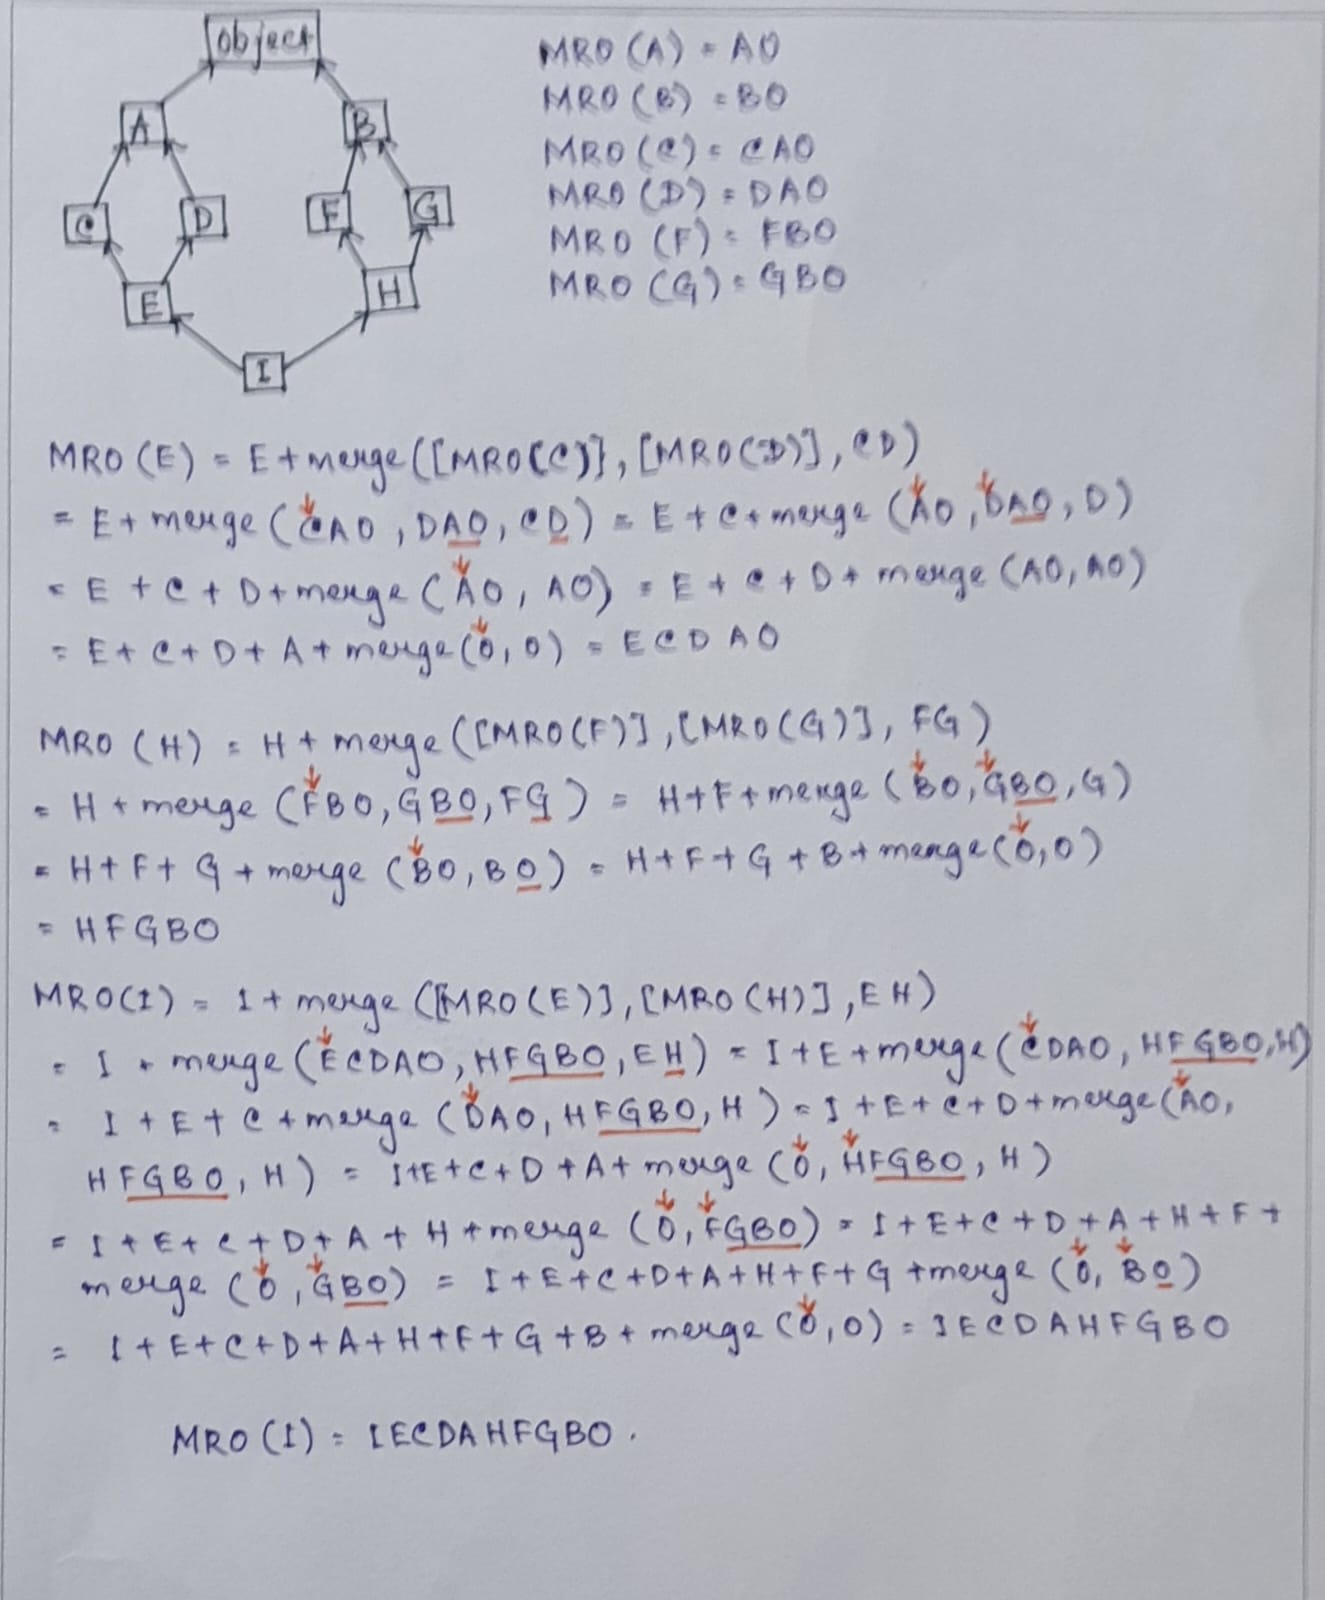 object
MRO (A) = AO
A
B
MRO (B) = BO
MRO (C) = CAO
C
D
F
G
MRO (D) = DAO
MRO (F) = FBO
E
H
MRO (G) = GBO
I
MRO (E) = E + merge ([MRO(C)], [MRO(D)], CD)
= E + merge (CAO, DAO, CD) = E + C + merge (AO, DAO, D)
= E + C + D + merge (AO, AO) = E + C + D + merge (AO, AO)
= E + C + D + A + merge (O, O) = ECDAO
MRO (H) = H + merge ([MRO(F)], [MRO(G)], FG)
= H + merge (FBO, GBO, FG) = H + F + merge (BO, GBO, G)
= H + F + G + merge (BO, BO) = H + F + G + B + merge (O, O)
= HFGBO
MRO(I) = I + merge ([MRO(E)], [MRO(H)], EH)
= I + merge (ECDAO, HFGBO, EH) = I + E + merge (CDAO, HFGBO, H)
= I + E + C + merge (DAO, HFGBO, H) = I + E + C + D + merge (AO,
HFGBO, H) = I + E + C + D + A + merge (O, HFGBO, H)
= I + E + C + D + A + H + merge (O, FGBO) = I + E + C + D + A + H + F +
merge (O, GBO) = I + E + C + D + A + H + F + G + merge (O, BO)
= I + E + C + D + A + H + F + G + B + merge (O, O) = IECDAHFGBO
MRO (I) = IECDAHFGBO.